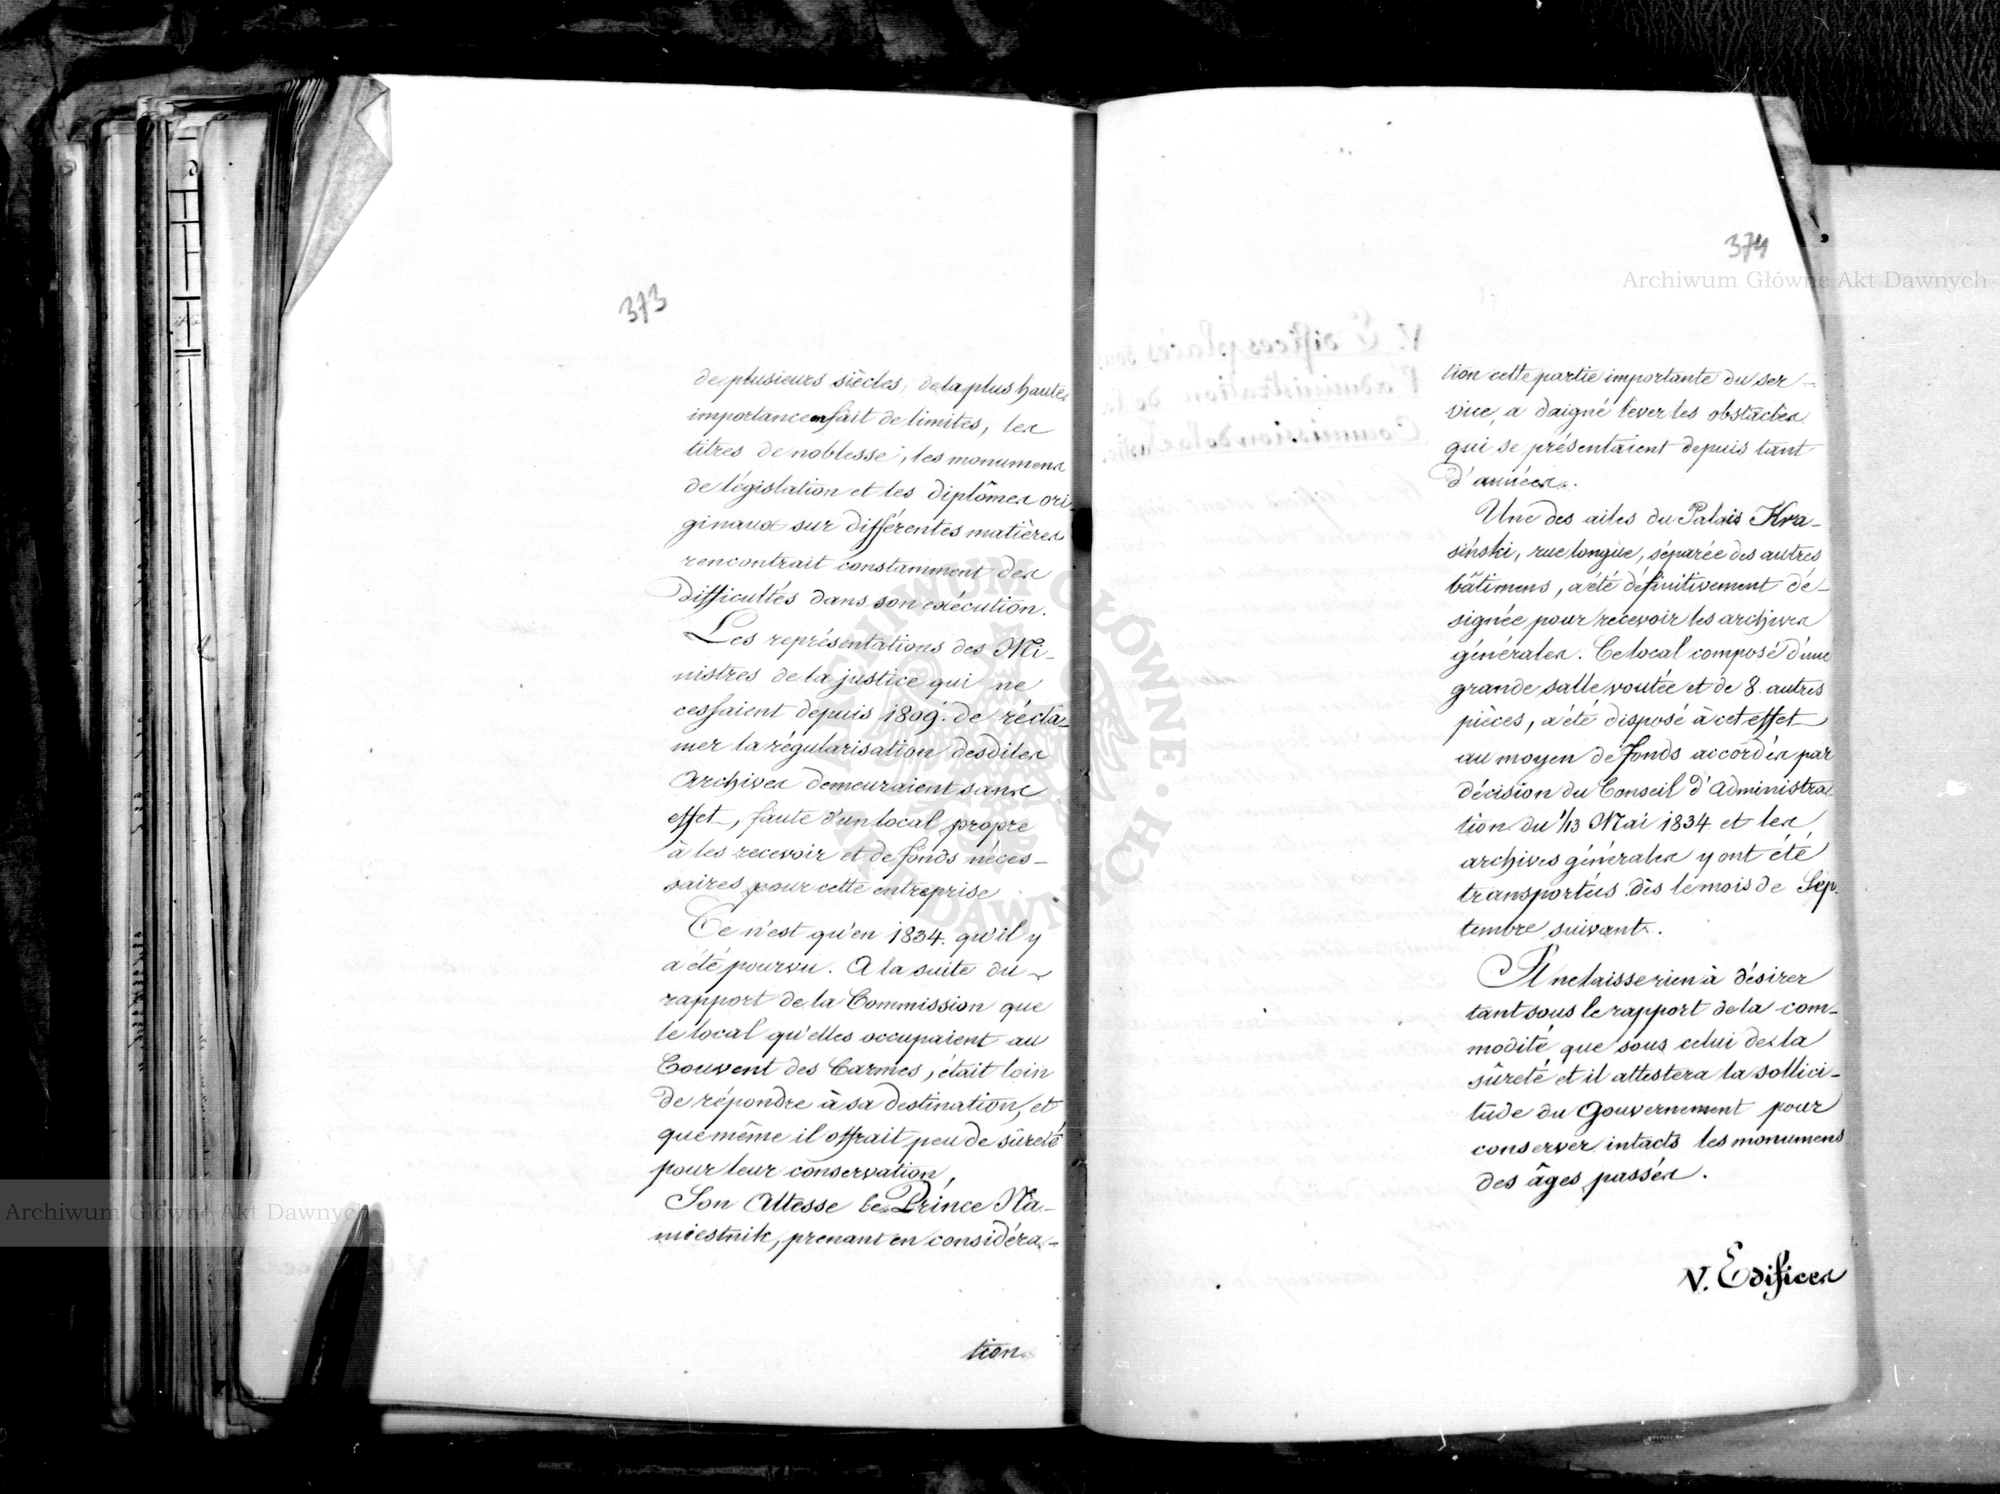 373
de plusieurs siècles, de la plus haute
importance en fait de limites, les
titres de noblesse, les monumens
de législation et les diplômes ori-
ginaux sur différentes matières
rencontrait constamment des
difficultés dans son exécution.
Les représentations des Mi-
nistres de la justice qui ne
cessaient depuis 1809. de récla-
mer la régularisation desdites
Archives demeuraient sans
effet, faute d'un local propre
à les recevoir et de fonds néces-
saires pour cette entreprise
Ce n'est qu'en 1834. qu'il y
a été pourvu. A la suite du
rapport de la Commission que
le local qu'elles occupaient au
Couvent des Carmes, était loin
de répondre à sa destination, et
que même il offrait peu de sûreté
pour leur conservation,
Son Altesse le Prince Na-
miestnik, prenant en considéra-
tion
374
tion cette partie importante du ser-
vice, a daigné lever les obstacles
qui se présentaient depuis tant
d'années.
Une des ailes du Palais Kra-
siński, rue longue, séparée des autres
bâtimens, a été définitivement dé-
signée pour recevoir les archives
générales. Ce local composé d'une
grande salle voutée et de 8. autres
pièces, a été disposé à cet effet
au moyen de fonds accordés par
décision du Conseil d'Administra-
tion du 1/13 Mai 1834 et les
archives générales y ont été
transportées dès le mois de Sep-
tembre suivant.
Il ne laisse rien à désirer
tant sous le rapport de la com-
modité que sous celui de la
sûreté et il attestera la sollici-
tude du Gouvernement pour
conserver intacts les monumens
des âges passés.
V. Edifices
Archiwum Główne Akt Dawnych
Archiwum Główne Akt Dawnych
ARCHIWUM GŁÓWNE AKT DAWNYCH